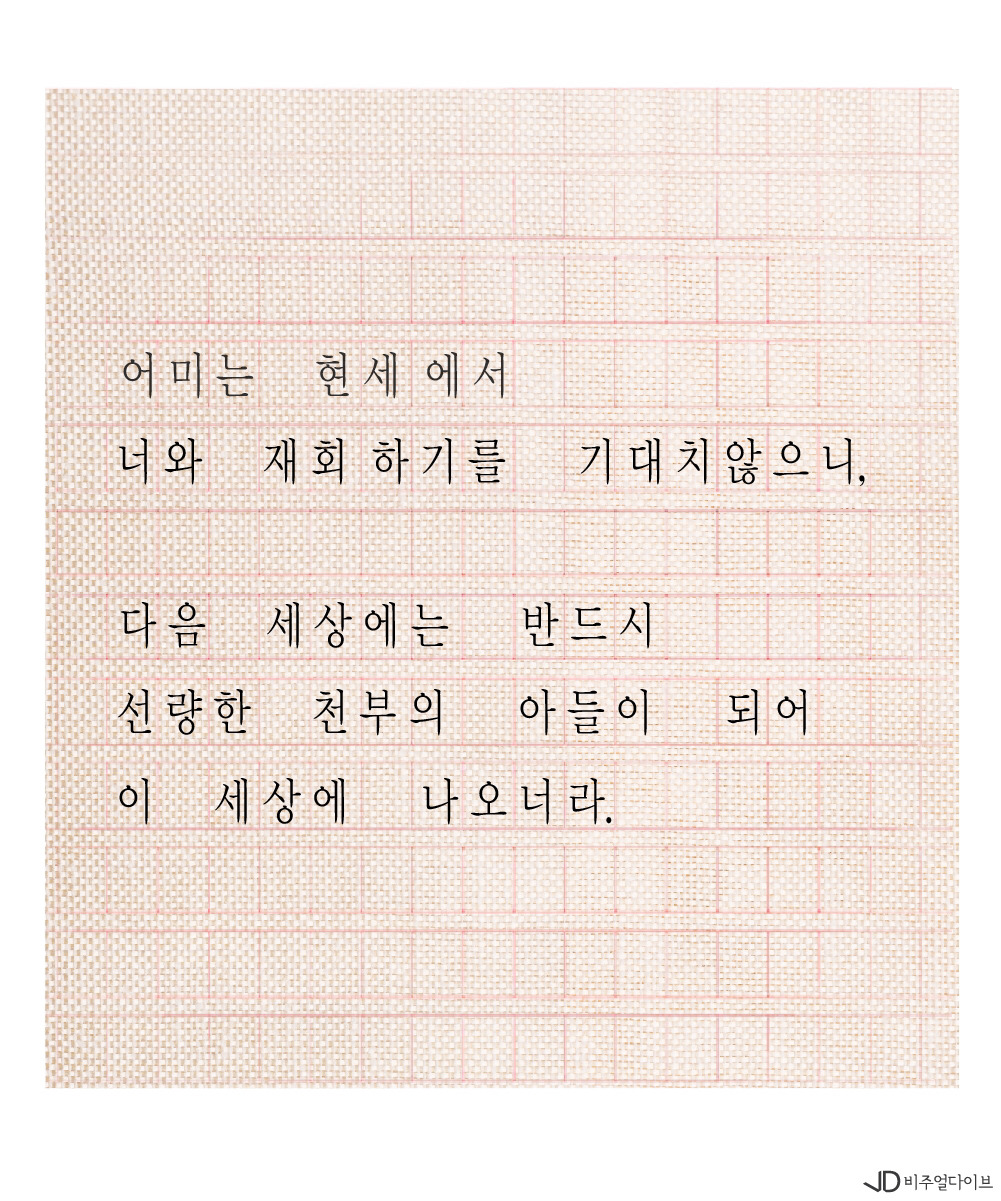 어미는 현세에서
너와 재회하기를 기대치않으니,
다음 세상에는 반드시
선량한 천부의 아들이 되어
이 세상에 나오너라.
VD 비주얼다이브